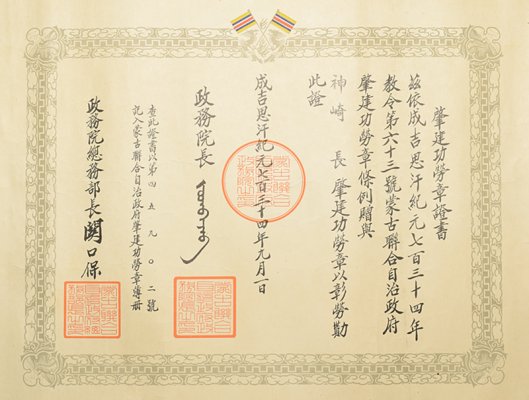 肇建功勞章證書
茲依成吉思汗紀元七百三十四年
教令第六十三號蒙古聯合自治政府
肇建功勞章條例贈與
神崎　長肇建功勞章以彰勞勩
此證
成吉思汗紀元七百三十四年元月一日
政務院長
查此證書以第四五九〇二號
記入蒙古聯合自治政府肇建功勞章簿冊
政務院總務部長関口保